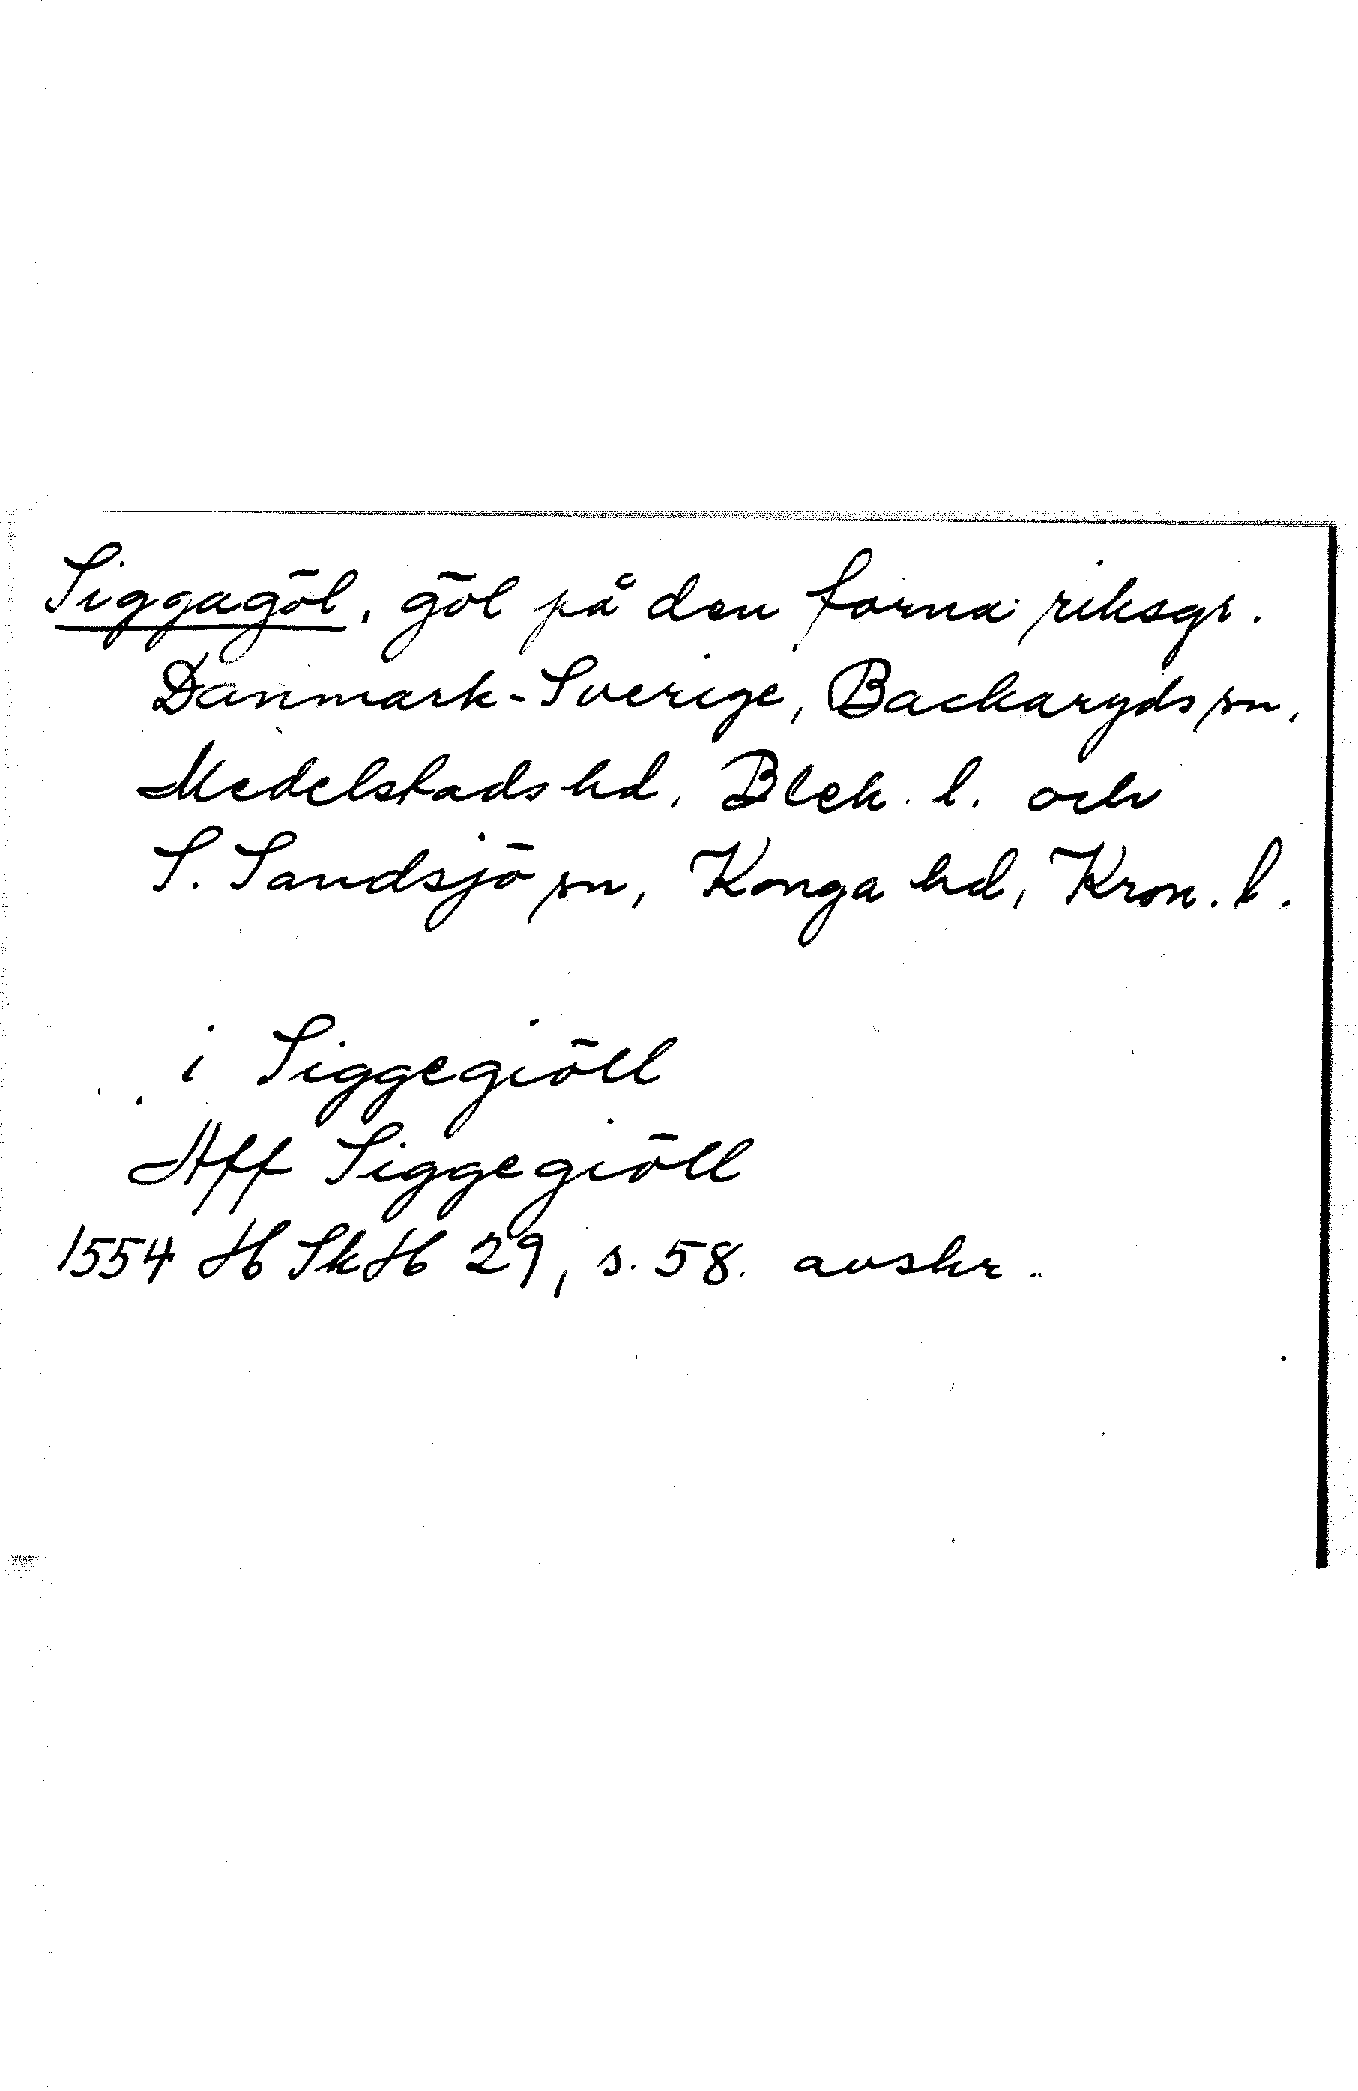 Siggagöl, göl på den forna riksgr.
Danmark-Sverige, Backaryds sn,
Medelstads hd, Blek. l. och
S. Sandsjö sn, Konga hd, Kron. l.
i Siggegiöll
Aff Siggegiöll
1554 HSkH 29, s. 58. avskr.